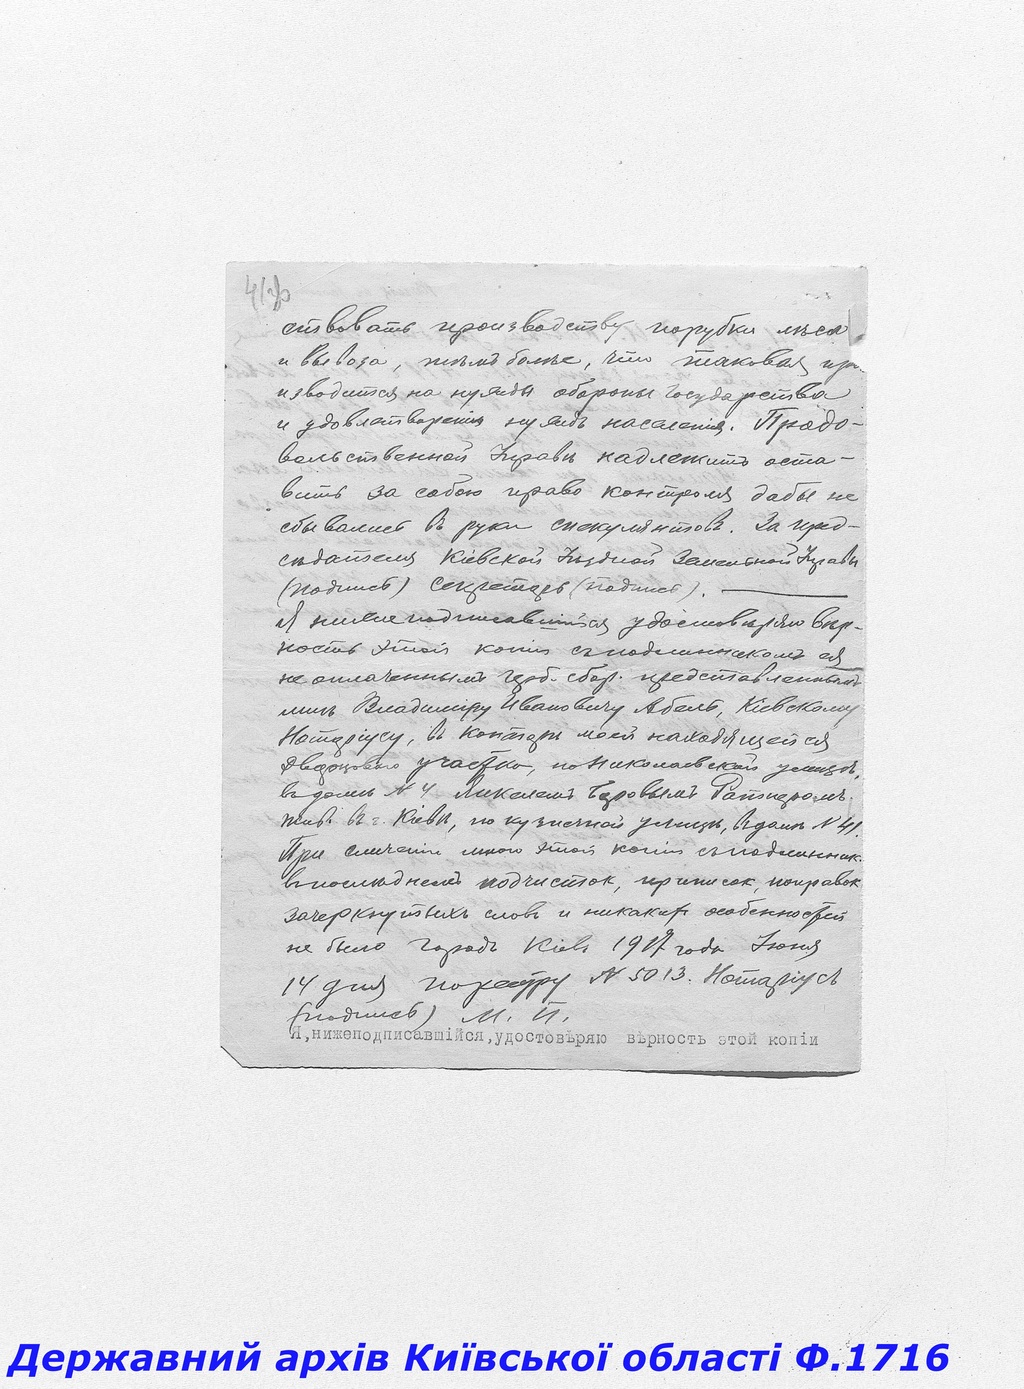 ствовать производству порубки лѣса
и вывоза, тѣмъ болѣе, что таковая про
изводится на нужды обороны Государства
и удовлетворенія нуждъ населенія. Продо-
вольственной Управѣ надлежитъ оста-
вить за собою право контроля дабы не
сбывались въ руки спекулянтовъ. За пред-
сѣдателя Кіевской Уѣздной Земельной Управы
(подпись) Секретарь (подпись).
Я нижеподписавшійся удостовѣряю вѣр-
ность этой копіи съ подлинникомъ ея
не оплаченнымъ герб. сбор. представленнымъ
мнѣ Владиміру Ивановичу Абель, Кіевскому
Нотаріусу, въ конторѣ моей находящейся
Дворцоваго участка, по Николаевской улицѣ,
въ домѣ № 4 Ратнеромъ
жив. въ г. Кіевѣ, по кузнечной улицѣ, въ домѣ № 41.
При сличеніи мною этой копіи съ подлинник.
въ послѣднемъ подчистокъ, приписок, поправок
зачеркнутыхъ словъ и никаких особенностей
не было городъ Кіевъ 1917 года Іюня
14 дня по реестру № 5013. Нотаріусъ
(подпись) М. П.
Я,нижеподписавшійся,удостовѣряю вѣрность этой копіи
Державний архів Київської області Ф.1716